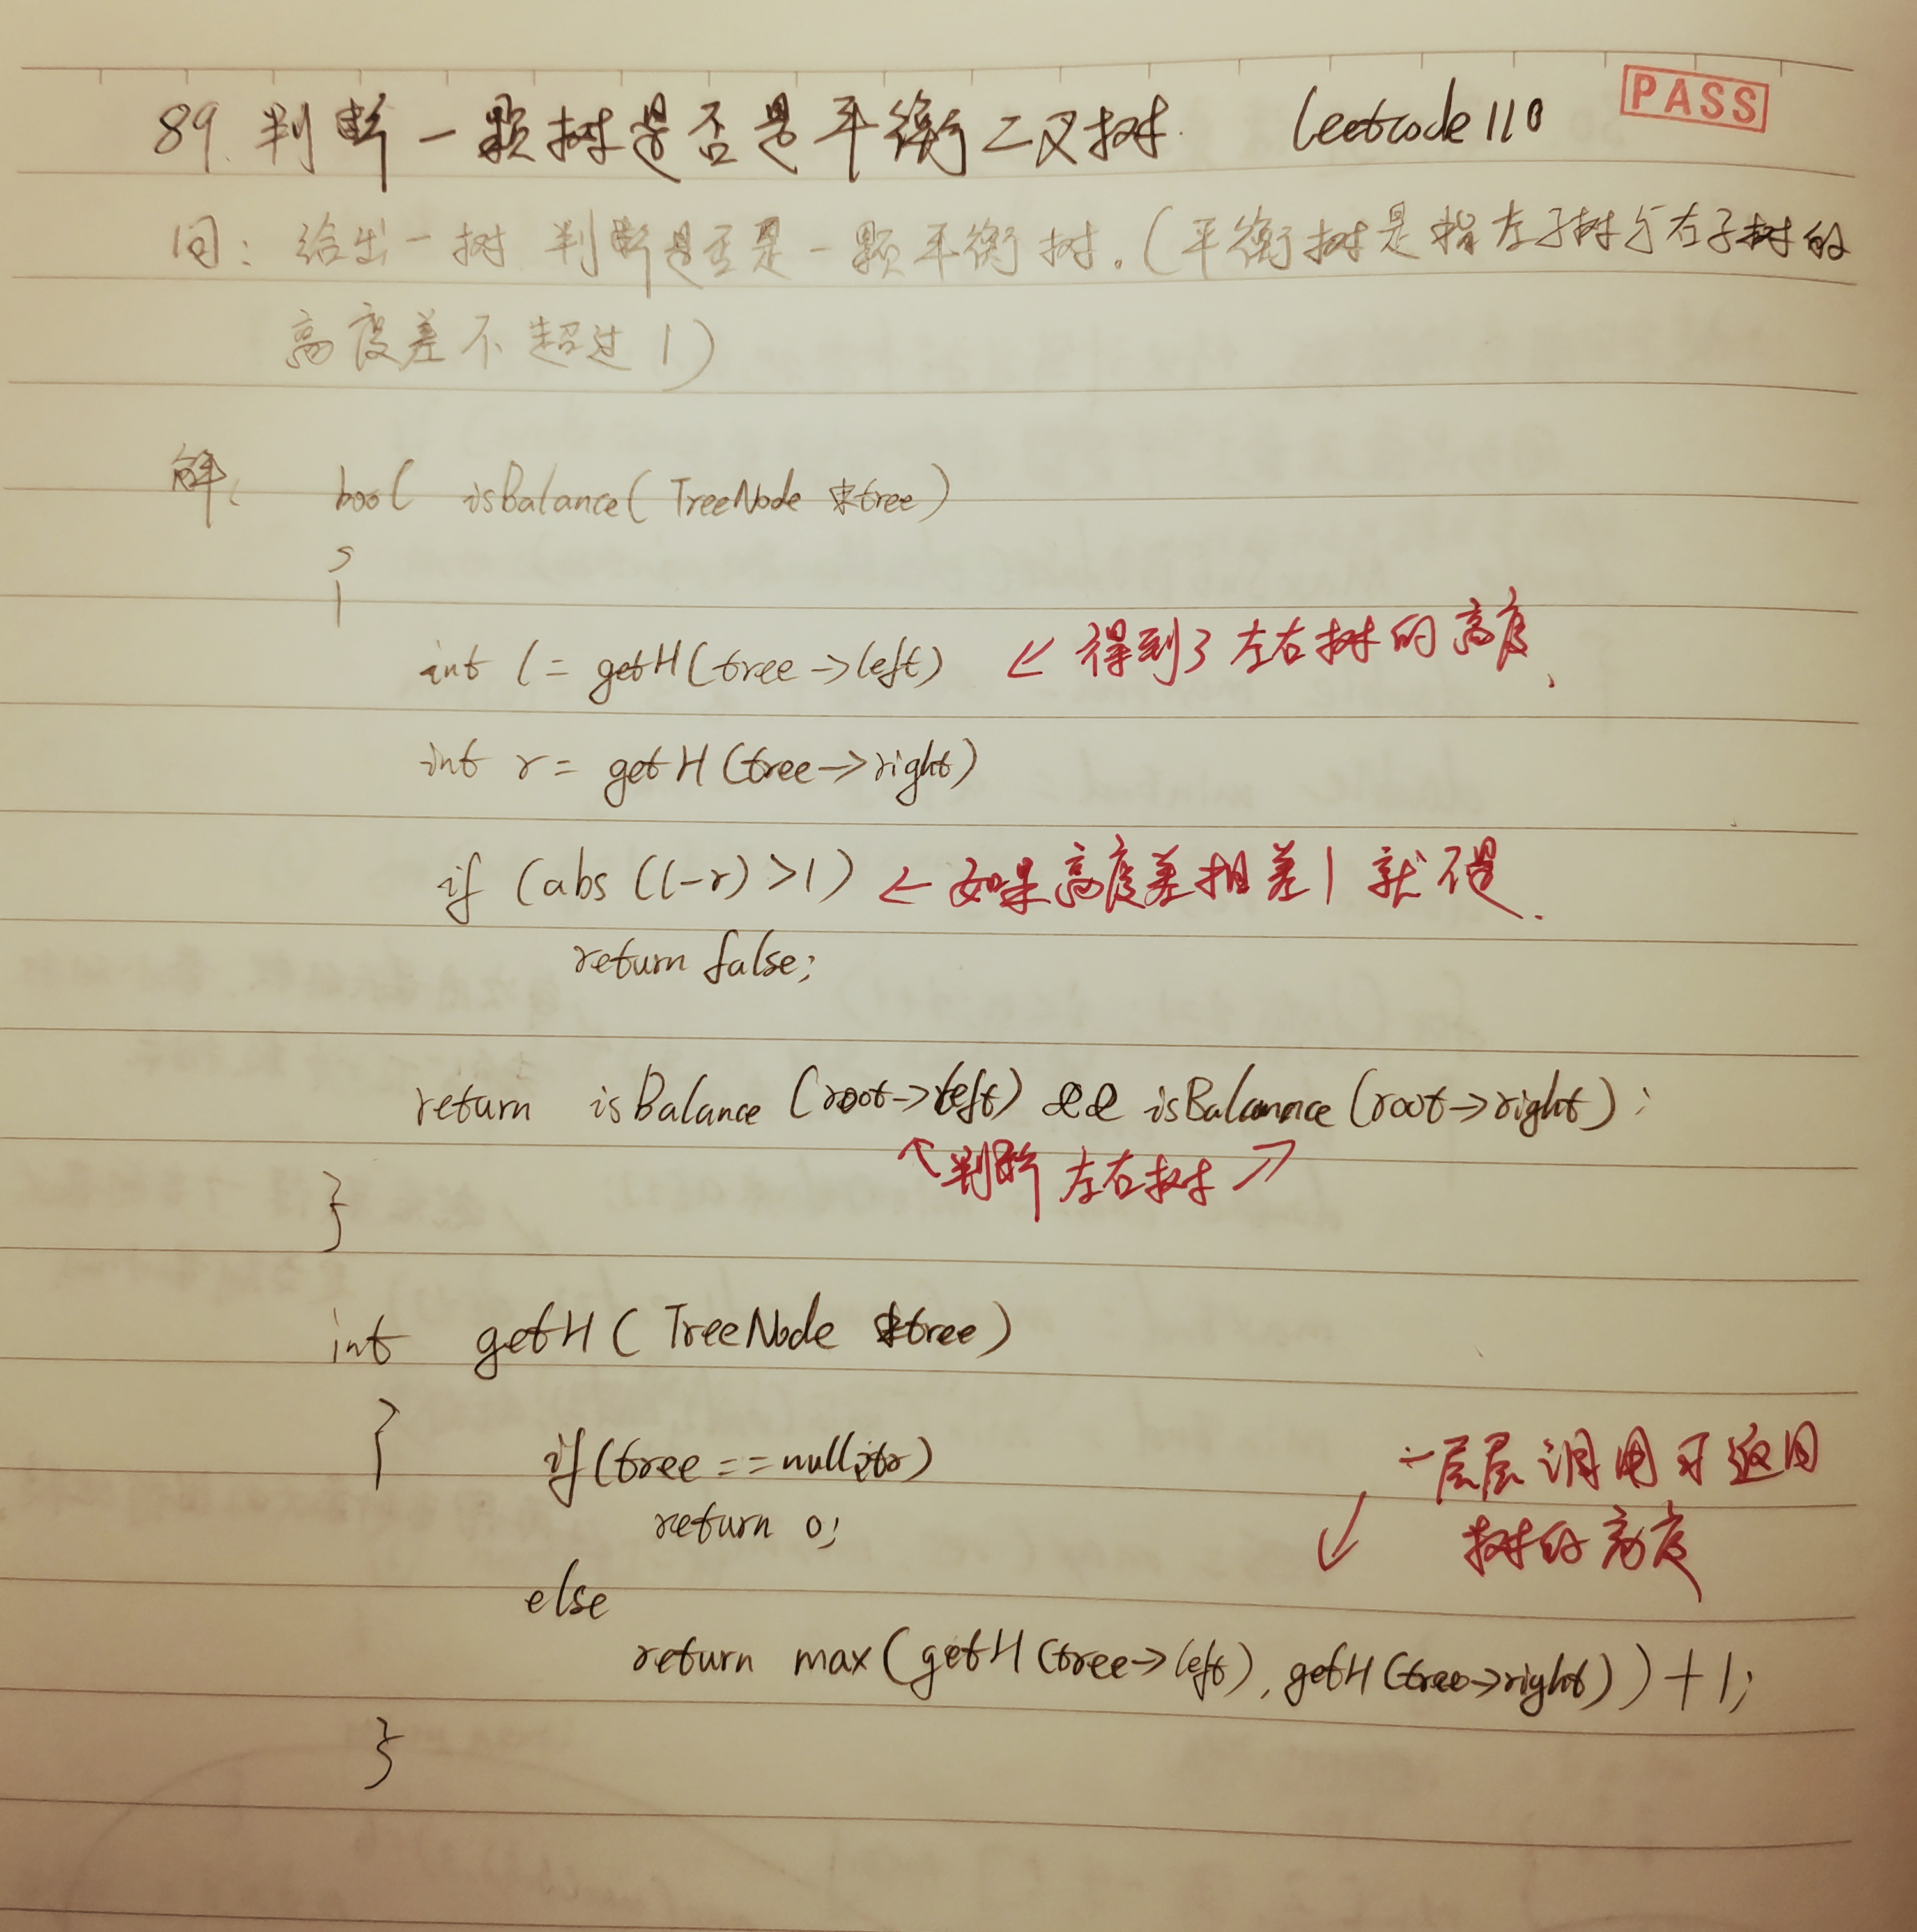 89. 判断一颗树是否是平衡二叉树. Leetcode 110 PASS
问: 给出一树 判断是否是一颗平衡树。(平衡树是指左子树与右子树的
高度差不超过1)
解: bool isBalance( TreeNode *tree)
{
int l = getH(tree->left) ← 得到了左右树的高度.
int r = getH(tree->right)
if (abs(l-r)>1) ← 如果高度差相差1就不是.
return false;
return isBalance(root->left) && isBalance(root->right);
↖判断左右树↗
}
int getH( TreeNode *tree)
{ if(tree==nullptr) 一层层调用可返回
return 0; ↙ 树的高度
else
return max(getH(tree->left), getH(tree->right))+1;
}